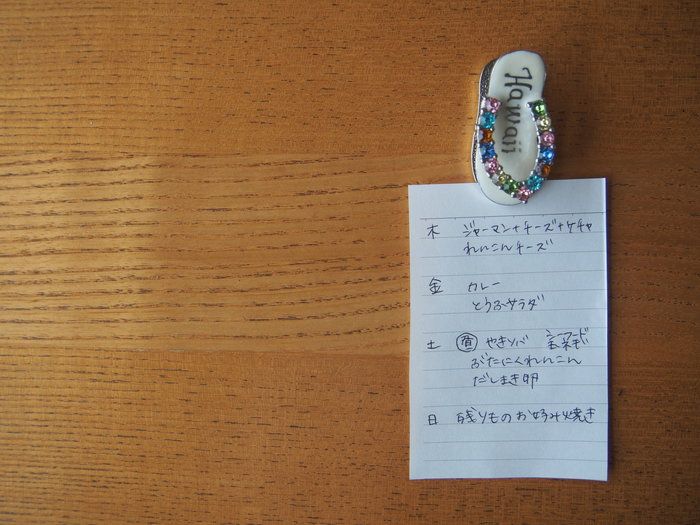 Hawaii
木 ジャーマン+チーズ+ケチャ
れんこんチーズ
金 カレー
とうふサラダ
土 やきソバ シーフード
ぶたにくれんこん
だしまき卵
日 残りものお好み焼き